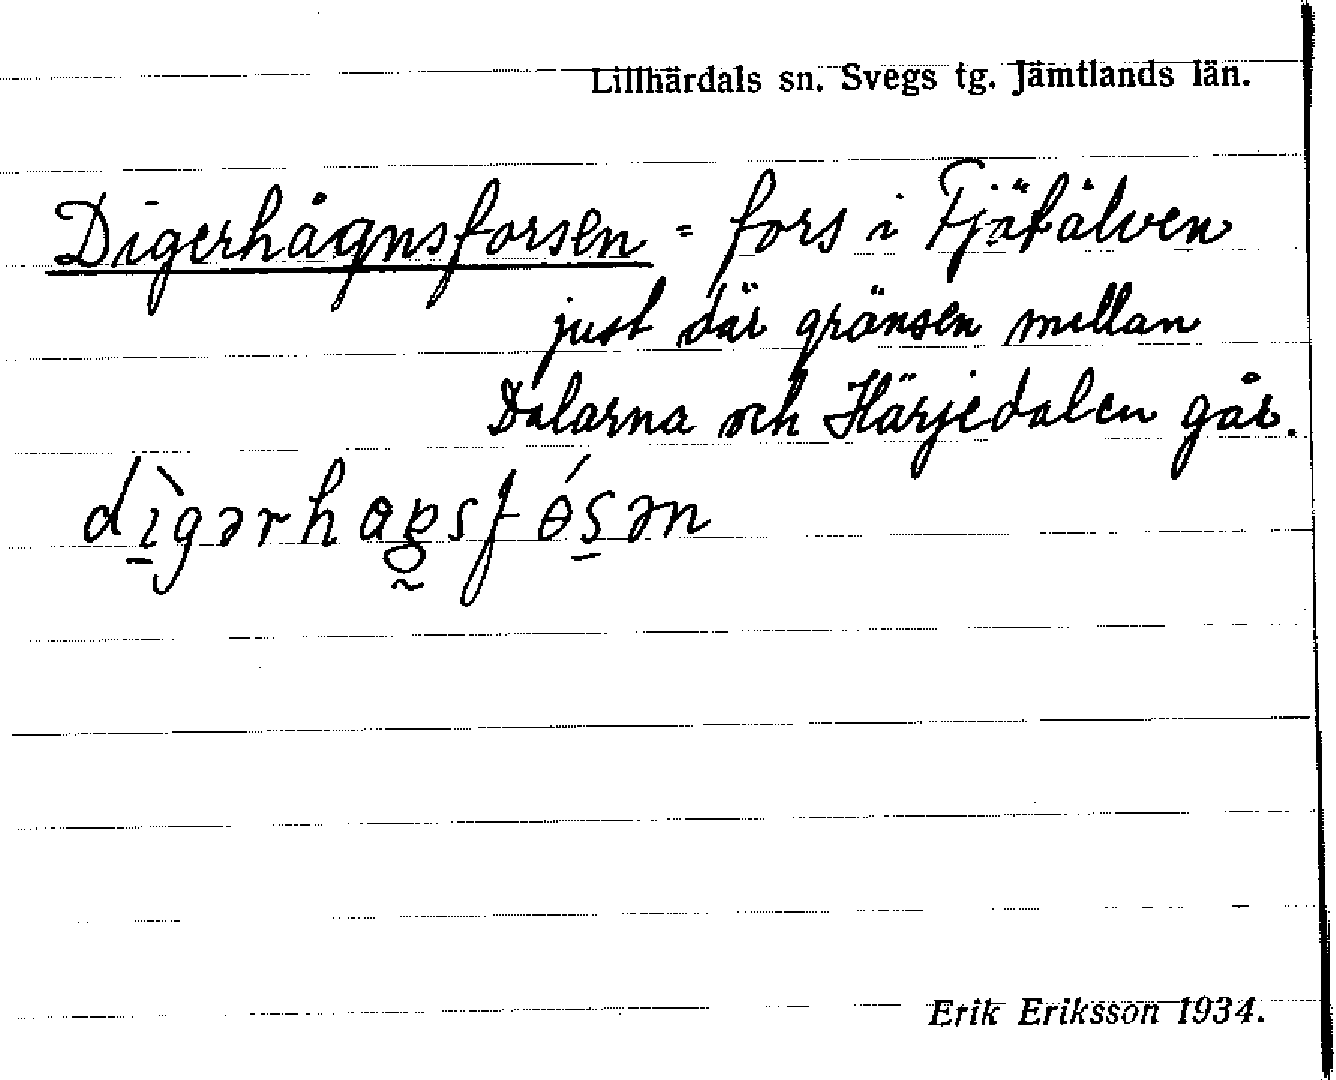 Lillhärdals sn. Svegs tg. Jämtlands län.
Digerhågnsforsen = fors i Fjätälven
just där gränsen mellan
Dalarna och Härjedalen går.
Erik Eriksson 1934.